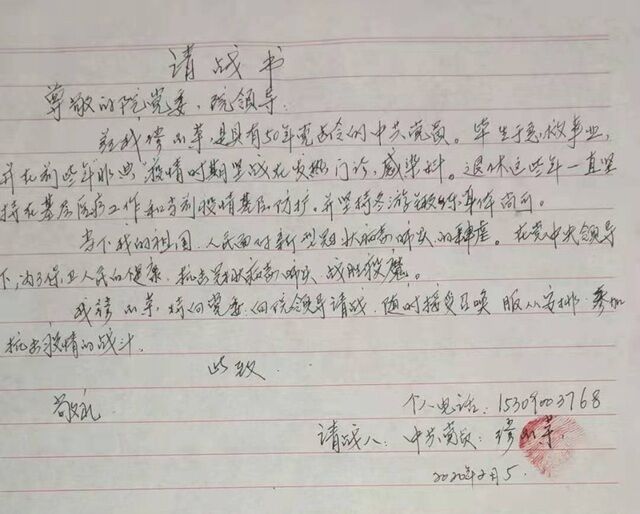 请战书
尊敬的院党委、院领导:
我缪小草,是具有50年党龄的中共党员。毕生于急救事业,
并在前些年非典疫情时期坚战在发热门诊,感染科。退休这些年一直坚
持在基层医疗工作和当前疫情基层防护,并坚持冬游锻炼身体尚可。
当下我的祖国、人民面对新型冠状病毒肺炎的肆虐。在党中央领导
下,为了保卫人民的健康,抗击冠状病毒肺炎 战胜疫魔。
我 小草,特向党委、向院领导请战,随时接受召唤 服从安排 参加
抗击疫情的战斗。
此致
敬礼
个人电话:15309003768
请战人:中共党员: 小草
2020年2月5.